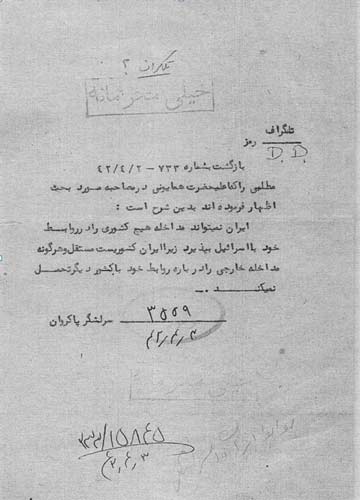 تلگراف ؟
خیلی محرمانه
تلگراف
رمز
D. D.
بازگشت بشماره ۷۳۳ - ۴۲/۴/۲
مطلبی راکه اعلیحضرت همایونی درمصاحبه مورد بحث
اظهار فرموده اند بدین شرح است :
ایران نمیتواند مداخله هیچ کشوری رادرروابسط
خود بااسرائیل بپذیرد زیراایران کشوریست مستقل وهرگونه
مداخله خارجی رادرباره روابط خود باکشوردیگرتحمل
نمیکند .-
سرلشگر پاکروان ۳۵۵۹
۴۲/۴/۳
۳۲۲/۱۵۸۴۵
۴۲/۴/۳